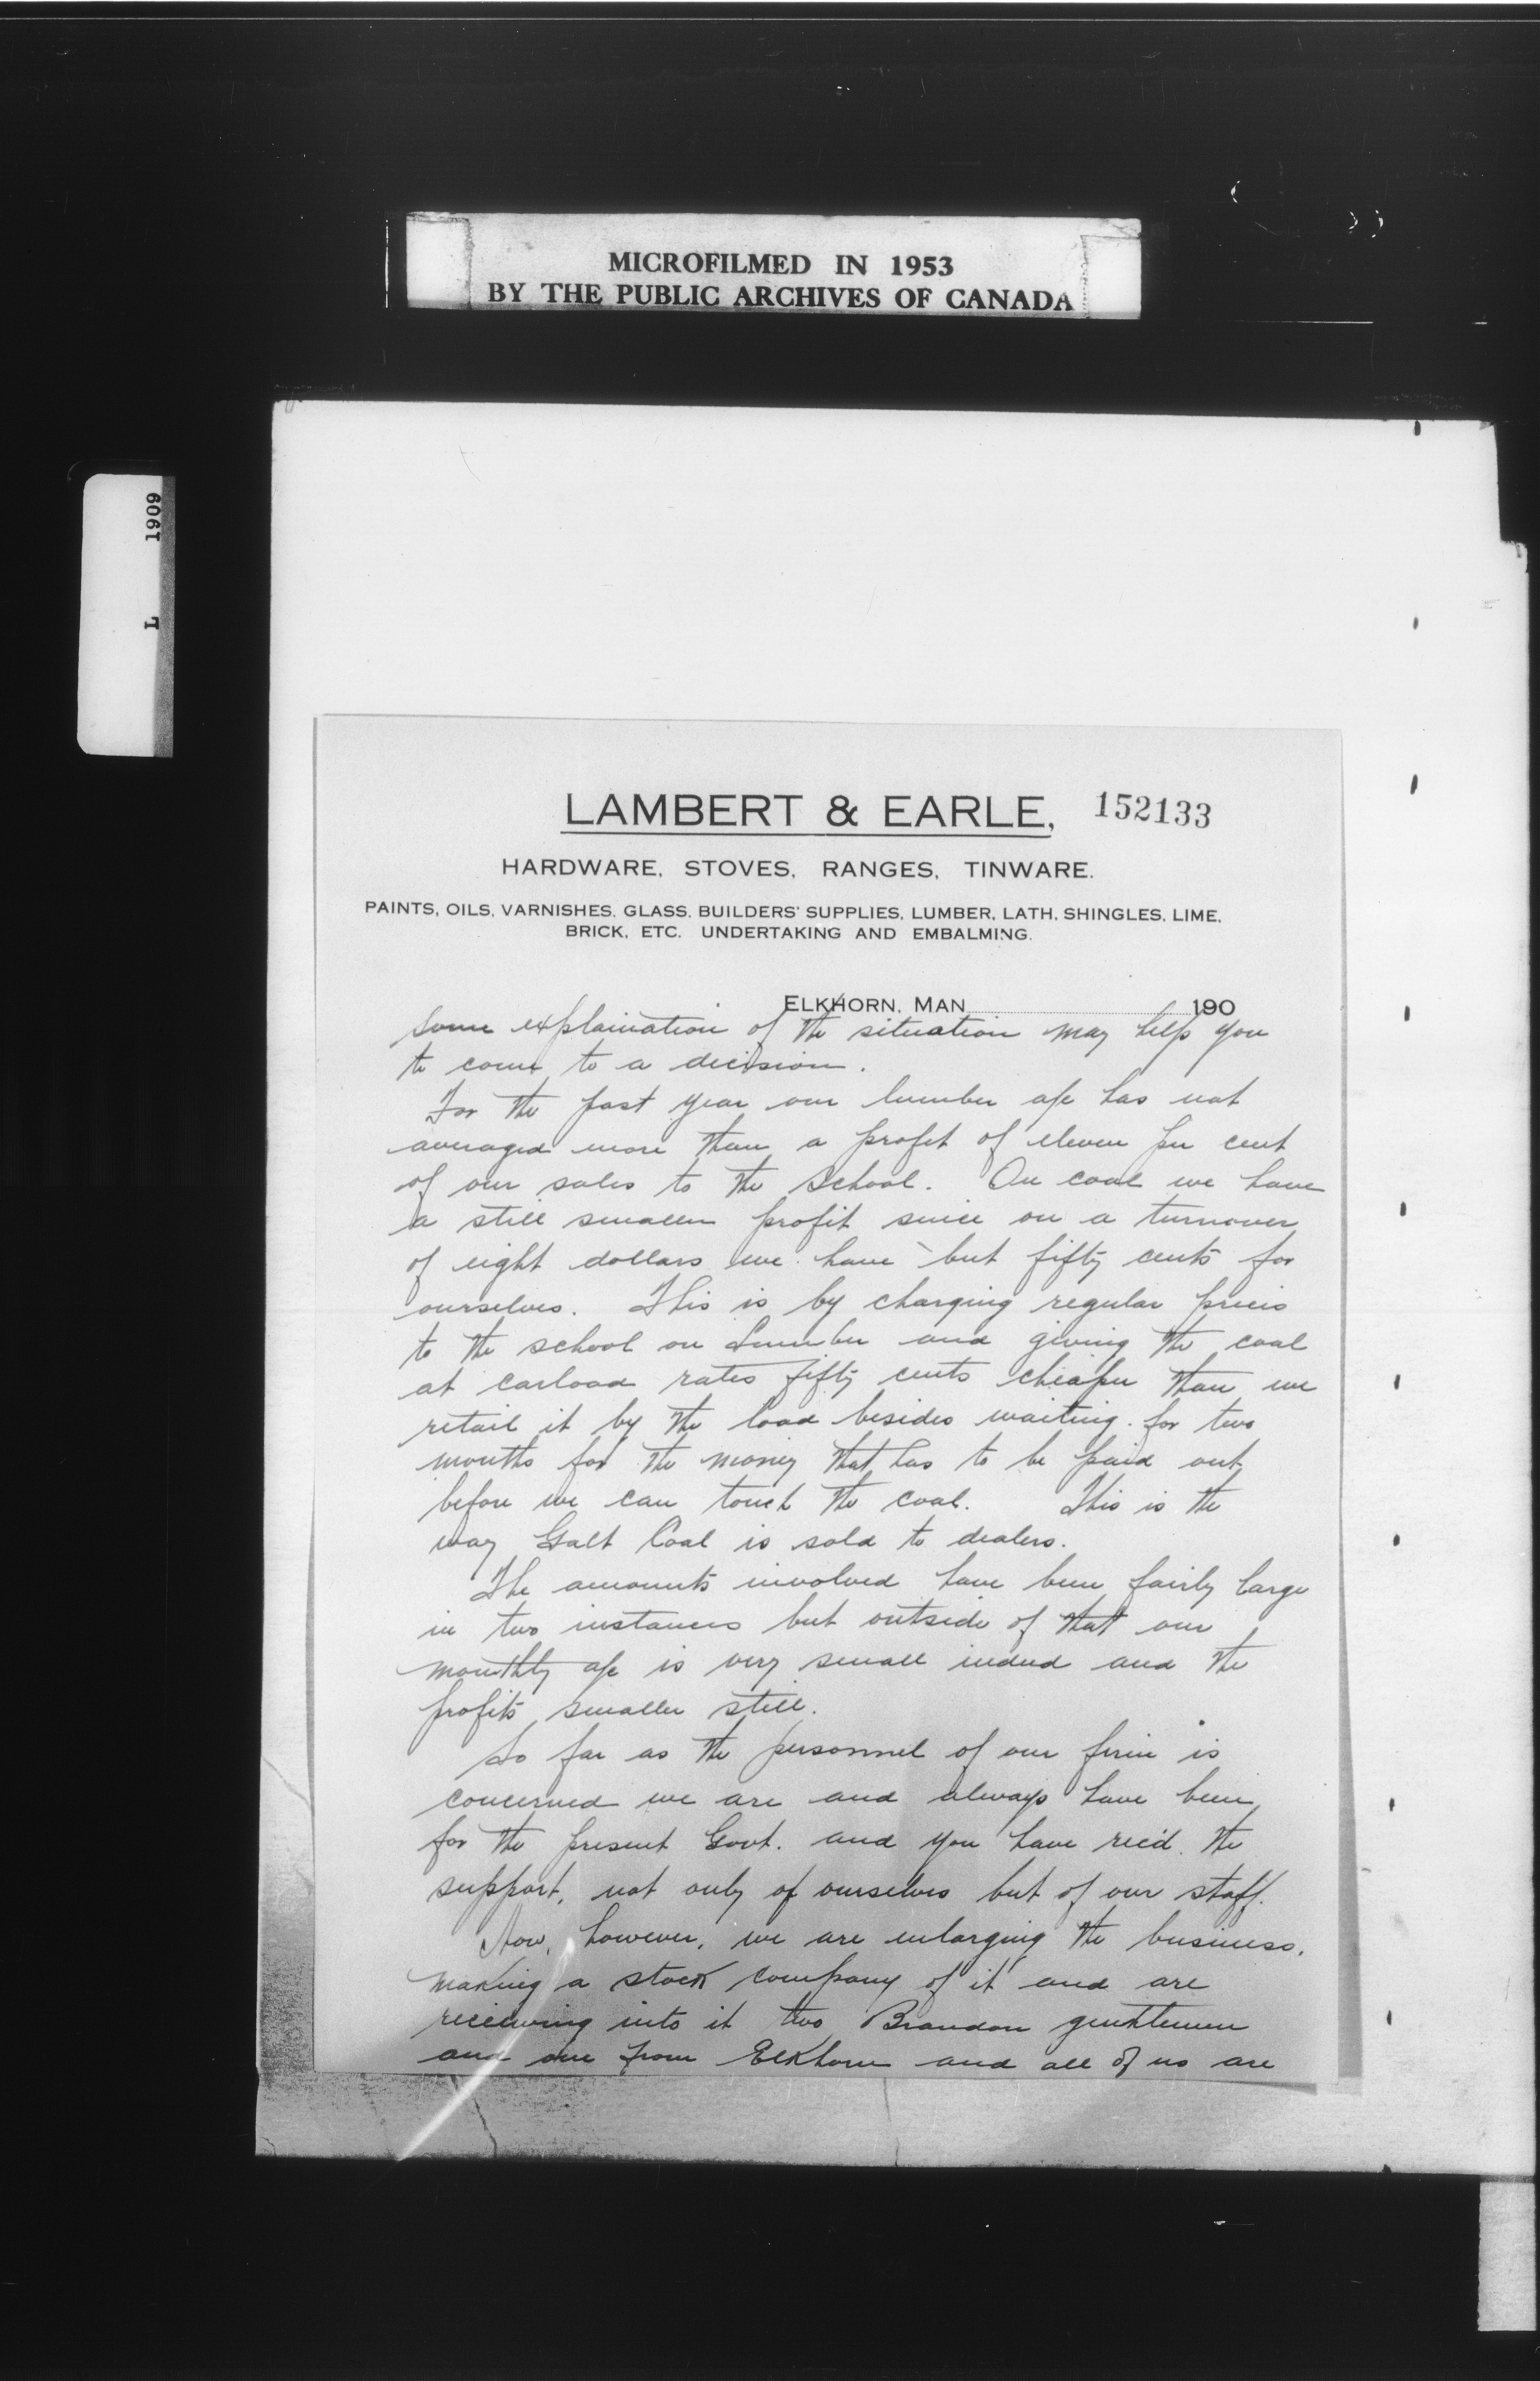 MICROFILMED IN 1953
BY THE PUBLIC ARCHIVES OF CANADA
L 1909
LAMBERT & EARLE, 152133
HARDWARE, STOVES, RANGES, TINWARE.
PAINTS, OILS, VARNISHES, GLASS, BUILDERS' SUPPLIES, LUMBER, LATH, SHINGLES, LIME,
BRICK, ETC. UNDERTAKING AND EMBALMING.
ELKHORN, MAN. 190
Some explaination of the situation may help you
to come to a decision.
For the past year our lumber a/c has not
averaged more than a profit of eleven per cent
of our sales to the School. On coal we have
a still smaller profit since on a turnover
of eight dollars we have but fifty cents for
ourselves. This is by charging regular prices
to the school on Lumber and giving the coal
at carload rates fifty cents cheaper than we
retail it by the load besides waiting for two
months for the money that has to be paid out
before we can touch the coal. This is the
way Galt Coal is sold to dealers.
The amounts involved have been fairly large
in two instances but outside of that our
monthly a/c is very small indeed and the
profits smaller still.
So far as the personnel of our firm is
concerned we are and always have been
for the present Govt. and you have rec'd. the
support, not only of ourselves but of our staff.
Now, however, we are enlarging the business,
making a stock company of it and are
receiving into it two Brandon gentlemen
and one from Elkhorn and all of us are